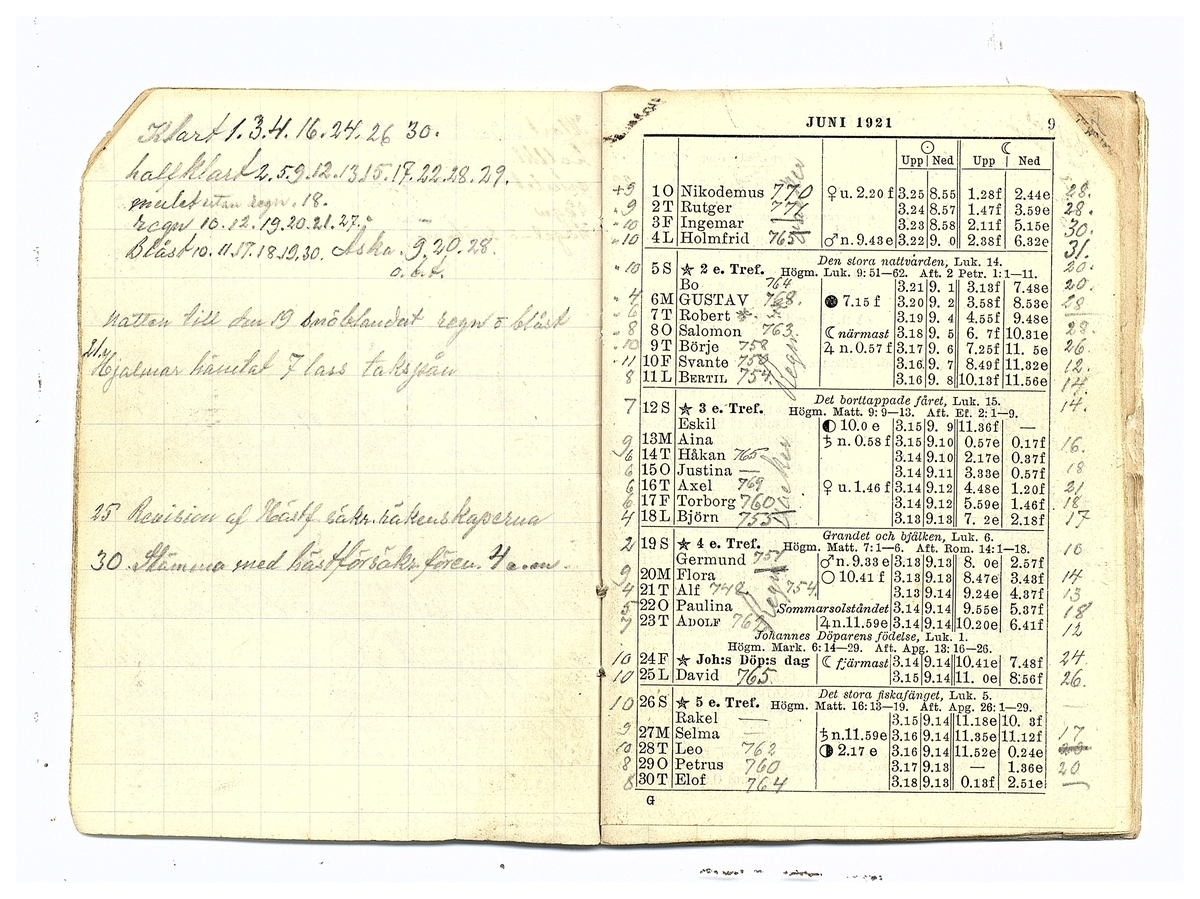 Klart 1. 3. 4. 16. 24. 26 30.
halfklart 2. 5. 9. 12. 13. 15. 17. 22. 28. 29.
mulet utan regn. 18.
regn 10. 12. 19. 20. 21. 27.
Blåst 10. 11. 17. 18. 19. 30. Åska. 9. 20. 28.
natten till den 19 snöblandat regn o blåst
21.
Hjalmar hämtat 7 lass takspån
25 Revision af Hästf säkr. räkenskaperna
30 Stämma med hästförsäkr. fören. 4 e.m.
JUNI 1921 9
☉ ☾
Upp Ned Upp Ned
+9 1 O Nikodemus 770 ♀ u. 2.20 f 3.25 8.55 1.28f 2.44e 28.
9 2 T Rutger 771 3.24 8.57 1.47f 3.59e 28.
10 3 F Ingemar 3.23 8.58 2.11f 5.15e 30.
10 4 L Holmfrid 765 ♂ n. 9.43 e 3.22 9. 0 2.38f 6.32e 31.
Den stora nattvarden, Luk. 14.
10 5 S ★ 2 e. Tref. Högm. Luk. 9: 51—62. Aft. 2 Petr. 1: 1—11. 20.
Bo 764 3.21 9. 1 3.13f 7.48e 20.
4 6 M GUSTAV 768. ● 7.15 f 3.20 9. 2 3.58f 8.53e 28
6 7 T Robert 3.19 9. 4 4.55f 9.48e
8 8 O Salomon 763 ☾ närmast 3.18 9. 5 6. 7f 10.31e 28.
10 9 T Börje 758 ♃ n. 0.57 f 3.17 9. 6 7.25f 11. 5e 26.
11 10 F Svante 3.16 9. 7 8.49f 11.32e 12.
8 11 L BERTIL 754. Regn 3.16 9. 8 10.13f 11.56e 14.
Det borttappade fåret, Luk. 15.
7 12 S ★ 3 e. Tref. Högm. Matt. 9: 9—13. Aft. Ef. 2: 1—9. 14.
Eskil ◐ 10.0 e 3.15 9. 9 11.36f —
9 13 M Aina ♄ n. 0.58 f 3.15 9.10 0.57e 0.17f 16.
6 14 T Håkan 765 3.14 9.10 2.17e 0.37f
6 15 O Justina — 3.14 9.11 3.33e 0.57f 18
6 16 T Axel 769 ♀ u. 1.46 f 3.14 9.12 4.48e 1.20f 21
6 17 F Torborg 760 3.14 9.12 5.59e 1.46f 18
4 18 L Björn 755 3.13 9.13 7. 2e 2.18f 17
Grandet och bjälken, Luk. 6.
2 19 S ★ 4 e. Tref. Högm. Matt. 7: 1—6. Aft. Rom. 14: 1—18. 10
Germund 751 ♂ n. 9.33 e 3.13 9.13 8. 0e 2.57f
9 20 M Flora ○ 10.41 f 3.13 9.13 8.47e 3.43f 14
4 21 T Alf 748. 754. 3.13 9.14 9.24e 4.37f 13
5 22 O Paulina Sommarsolståndet 3.14 9.14 9.55e 5.37f 18
7 23 T ADOLF 762 Regn ♃ n. 11.59e 3.14 9.14 10.20e 6.41f 12
Johannes Döparens födelse, Luk. 1.
Högm. Mark. 6: 14—29. Aft. Apg. 13: 16—26.
10 24 F ★ Joh:s Döp:s dag ☾ fjärmast 3.14 9.14 10.41e 7.48f 24.
10 25 L David 765 3.15 9.14 11. 0e 8.56f 26.
Det stora fiskafänget, Luk. 5.
10 26 S ★ 5 e. Tref. Högm. Matt. 16: 13—19. Aft. Apg. 26: 1—29. —
Rakel — 3.15 9.14 11.18e 10. 3f
9 27 M Selma — ♄ n. 11.59e 3.16 9.14 11.35e 11.12f 17
10 28 T Leo 762 ◑ 2.17 e 3.16 9.14 11.52e 0.24e
8 29 O Petrus 760 3.17 9.13 — 1.36e 20
8 30 T Elof 764 3.18 9.13 0.13f 2.51e —
G